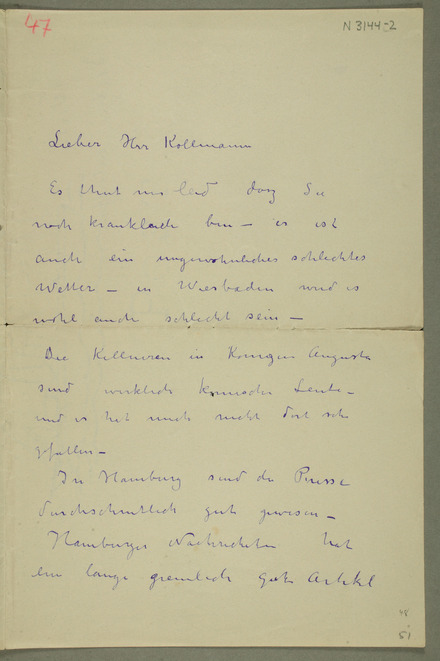 47
N 3144-2
Lieber Herr Kollmann
Es thut mir leid dass Sie
noch kranklich bin – es ist
auch ein ungewohnliches schlechtes
Wetter – in Wiesbaden wird es
wohl auch schlecht sein –
Die Kellneren in Konigin Augusta
sind wirklich komische Leute –
und es hat mich nicht dort sehr
gefallen –
In Hamburg sind die Presse
durchschnittlich gut gewesen –
Hamburger Nachrichten hat
ein lange ziemlich gute Artikel
48
51